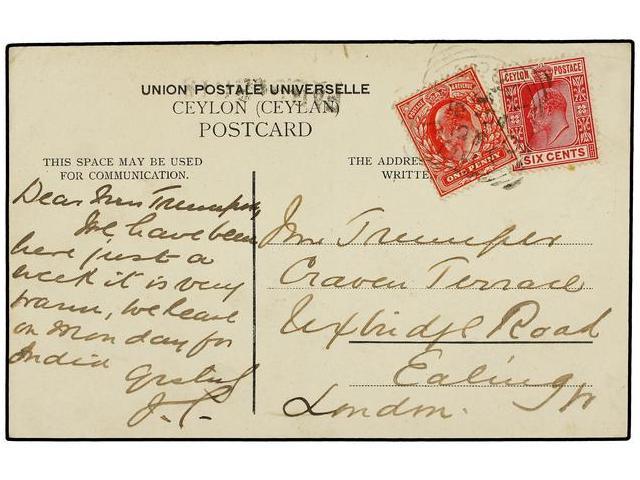 UNION POSTALE UNIVERSELLE
CEYLON (CEYLAN)
POSTCARD
THIS SPACE MAY BE USED
FOR COMMUNICATION.
THE ADDRE
WRITTE
POSTAGE & REVENUE
ONE PENNY
CEYLON POSTAGE
SIX CENTS
Dear Mrs Trumper,
We have been
here just a
week it is very
warm, we leave
on Monday for
India
J.C.
Mrs Trumper
Craven Terrace
Uxbridge Road
Ealing W
London.